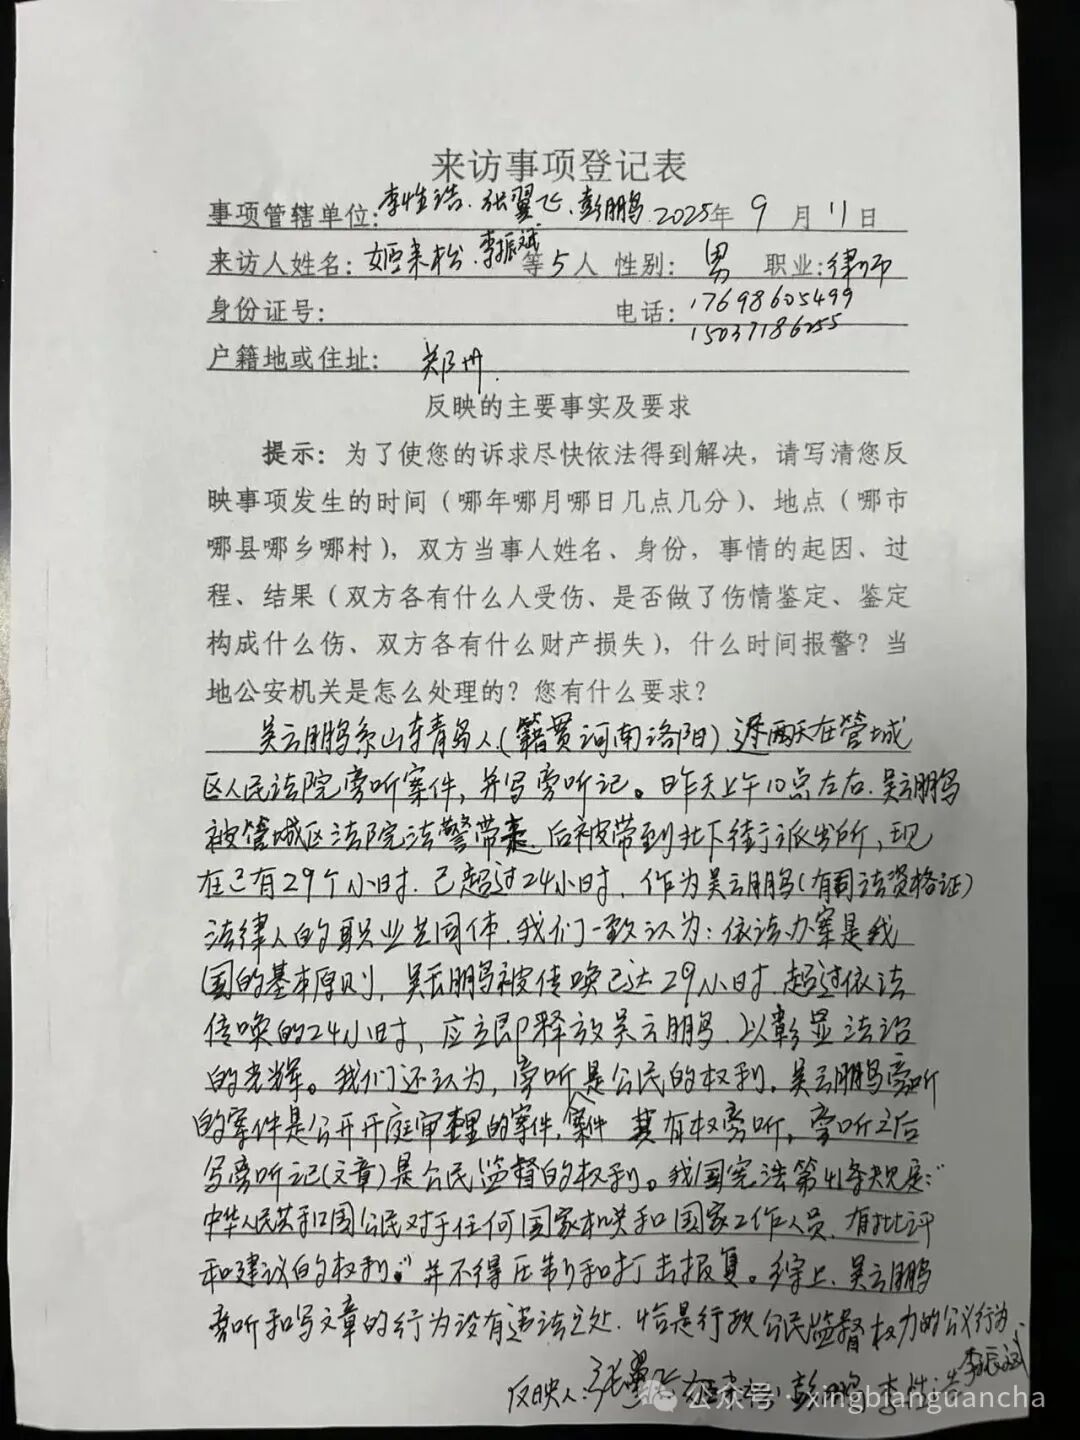 来访事项登记表
事项管辖单位:李性浩、张翼飞、彭鹏 2025年 9 月 11 日
来访人姓名:姬来松、李振斌等5人 性别: 男 职业:律师
身份证号: 电话: 17698605499
15037186255
户籍地或住址: 郑州.
反映的主要事实及要求
提示:为了使您的诉求尽快依法得到解决,请写清您反
映事项发生的时间(哪年哪月哪日几点几分)、地点(哪市
哪县哪乡哪村),双方当事人姓名、身份,事情的起因、过
程、结果(双方各有什么人受伤、是否做了伤情鉴定、鉴定
构成什么伤、双方各有什么财产损失),什么时间报警?当
地公安机关是怎么处理的?您有什么要求?
吴云鹏系山东青岛人(籍贯河南洛阳)这两天在管城
区人民法院旁听案件,并写旁听记。昨天上午10点左右.吴云鹏
被管城区法院法警带走 后被带到北下街派出所,现
在已有29个小时.已超过24小时.作为吴云鹏(有司法资格证)
法律人的职业共同体.我们一致认为:依法办案是我
国的基本原则,吴云鹏被传唤已达29小时.超过依法
传唤的24小时,应立即释放吴云鹏.以彰显法治
的光辉。我们还认为,旁听是公民的权利.吴云鹏旁听
的案件是公开开庭审理的案件,案件 其有权旁听,旁听之后
写旁听记(文章)是公民监督的权利。我国宪法第41条规定:“
中华人民共和国公民对于任何国家机关和国家工作人员.有批评
和建议的权利。”并不得压制和打击报复。综上.吴云鹏
旁听和写文章的行为没有违法之处.恰是行政公民监督权力的公义行为.
反映人:张翼飞 姬来松 彭鹏 李性浩 李振斌
公众号·xingbianguancha